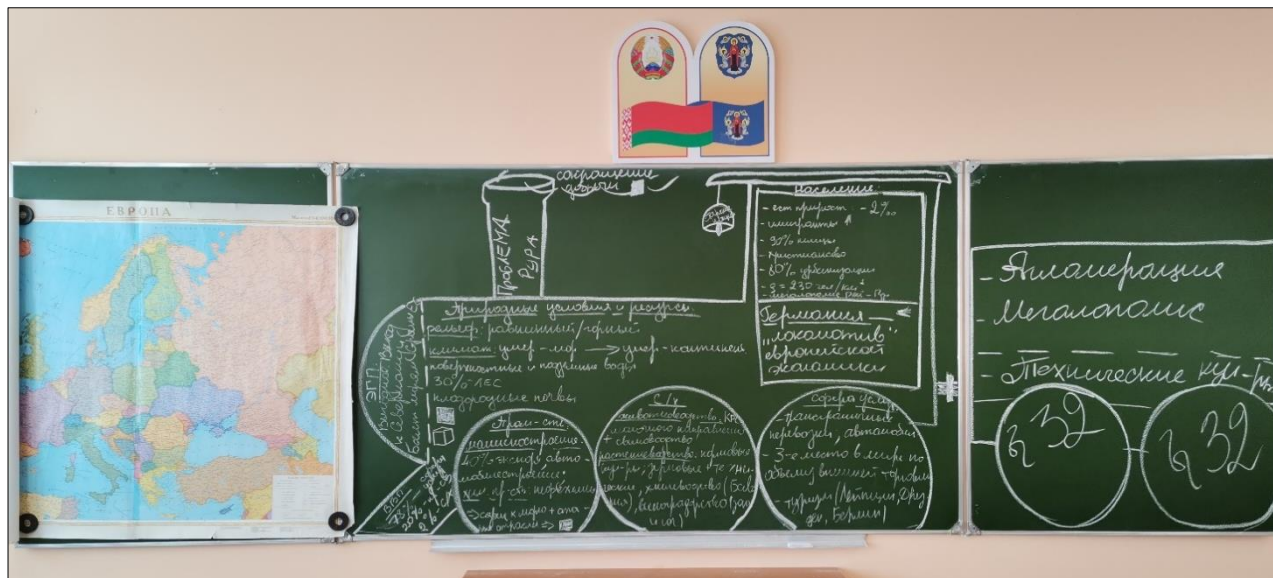 ЕВРОПА
сокращение
добычи
ПРОБЛЕМА
РУРА
Население
- ест. прирост - 2‰
- имигранты
- 90% немцы
- христианство
- 80% урбанизации
- q = 230 чел/км²
- мегалополис
Германия -
"локомотив"
европейской
экономики
ЭГП
к Северному
Природные условия и ресурсы
рельеф: равнинный/горный
климат: умер-мор → умер-континен
поверхностные и подземные воды
30% ЛЕС
плодородные почвы
Пром-сть
машиностроение.
40% авто-
мобилестроение
хим. пр-сть
ВВП
С/х
животноводство КРС
молочного направления
+ свиноводство
растениеводство: кормовые
зерновые техни-
ческие, хмелеводство (Бава
рия), виноградарство
Сфера услуг
- трансграничные
перевозки, автомобил
- 3-е место в мире по
объему внешней торговли
- туризм (Лейпциг, Дрез
ден, Берлин)
- Агломерация
- Мегалополис
- Технические кул-ры
§ 32
§ 32